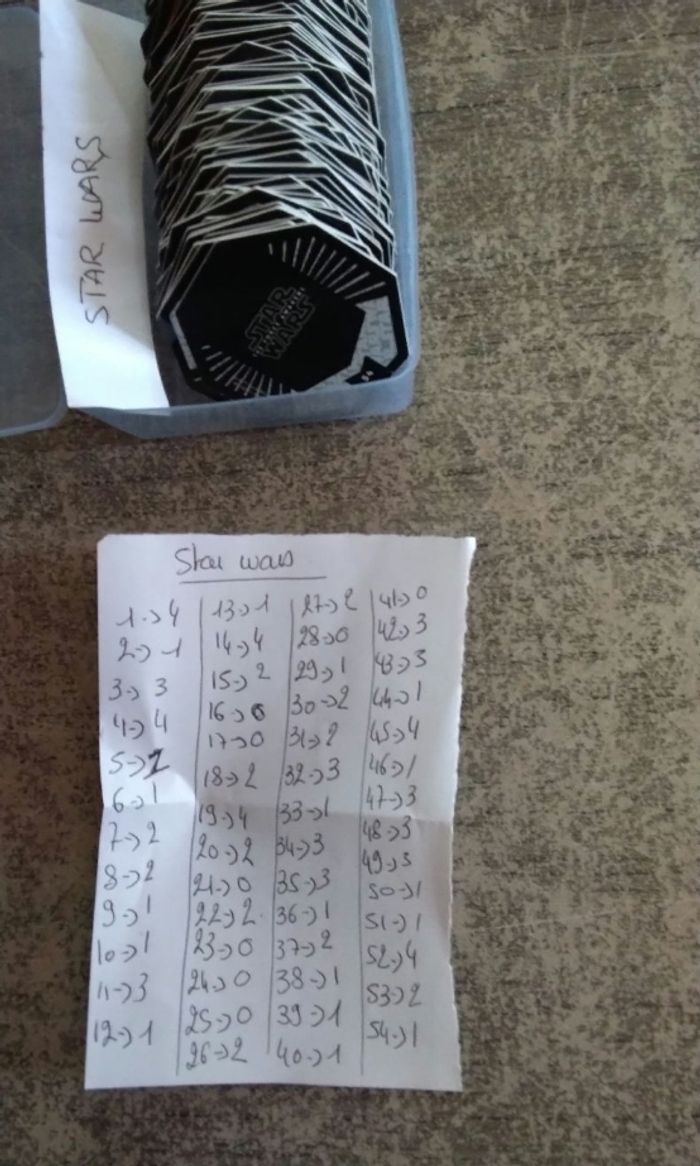 STAR WARS
STAR
WARS
Star wars
1->4
2->1
3->3
4->4
5->2
6->1
7->2
8->2
9->1
10->1
11->3
12->1
13->1
14->4
15->2
16->0
17->0
18->2
19->4
20->2
21->0
22->2
23->0
24->0
25->0
26->2
27->2
28->0
29->1
30->2
31->2
32->3
33->1
34->3
35->3
36->1
37->2
38->1
39->1
40->1
41->0
42->3
43->3
44->1
45->4
46->1
47->3
48->3
49->3
50->1
51->1
52->4
53->2
54->1